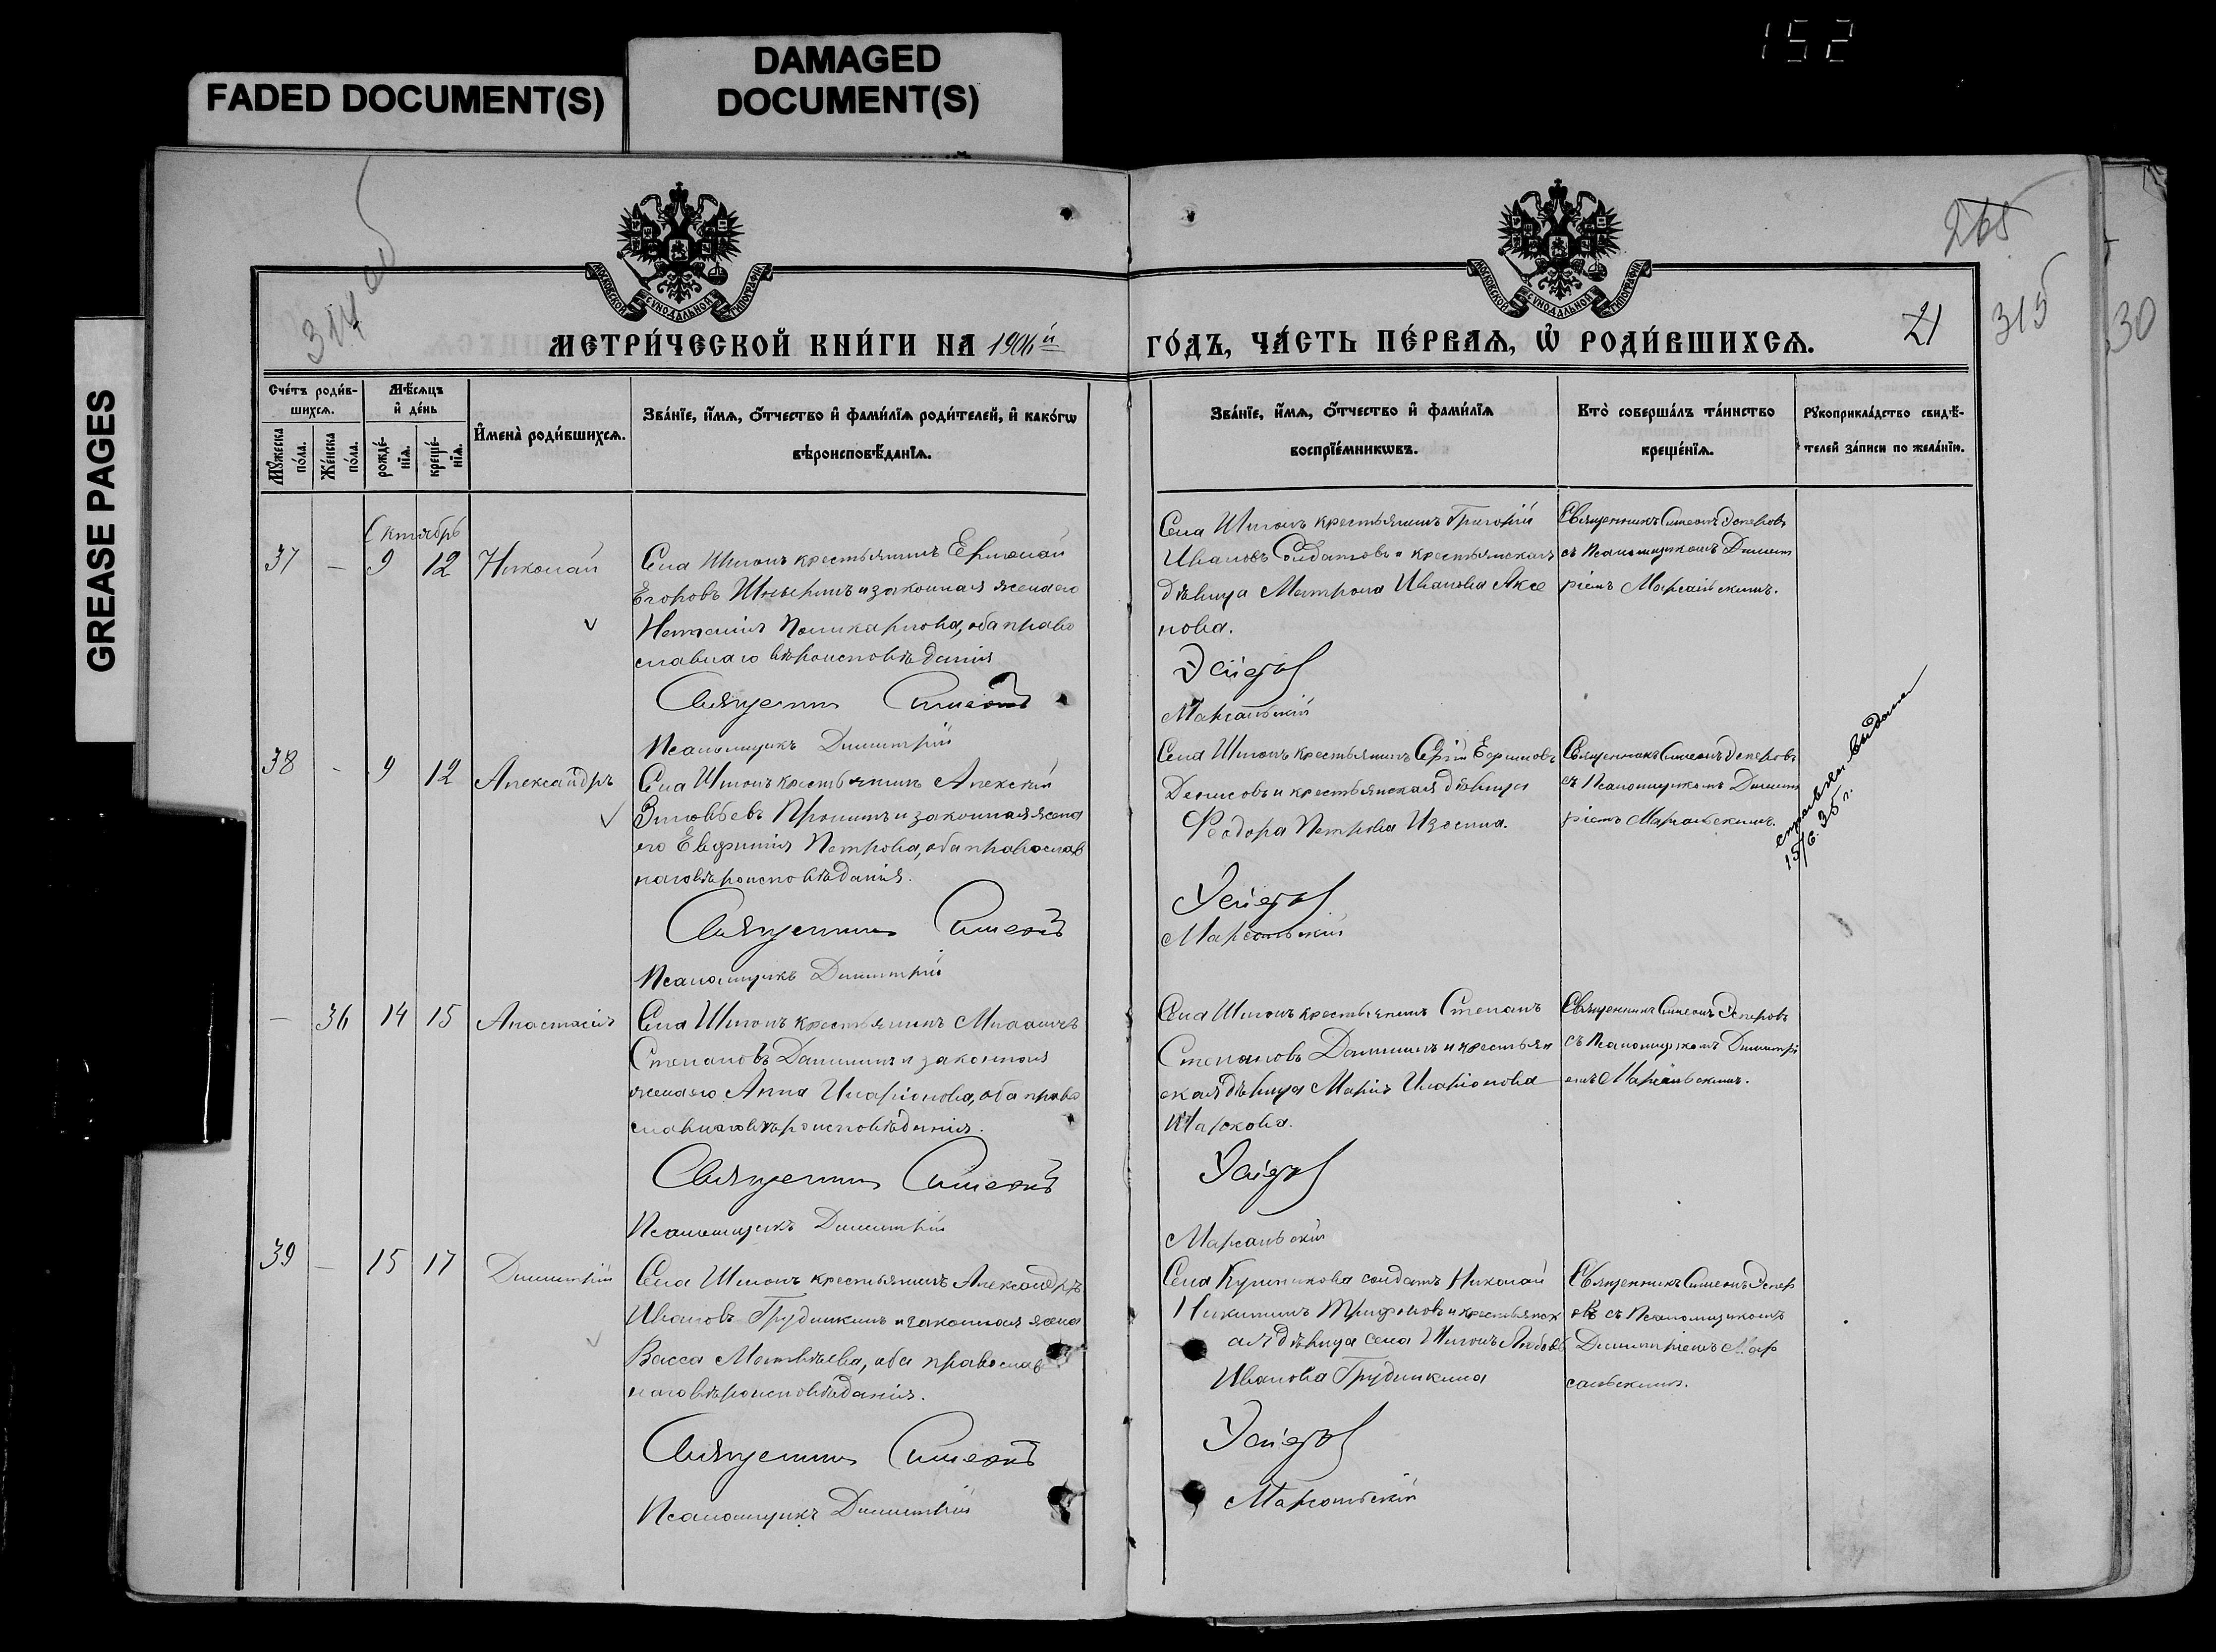 152
FADED DOCUMENT(S)
DAMAGED
DOCUMENT(S)
GREASE PAGES
314 об
265
21
315
30
МОСКОВСКОЙ СѴНОДАЛЬНОЙ ТИПОГРАФІИ.
МОСКОВСКОЙ СѴНОДАЛЬНОЙ ТИПОГРАФІИ.
МЕТРИ́ЧЕСКОЙ КНИ́ГИ НА 1906й
ГО́ДЪ, ЧА́СТЬ ПЕ́РВАѦ, Ѡ҆ РОДИ́ВШИХСѦ.
Сче́тъ роди́в-
шихсѧ.
Мꙋ́жеска по́ла.
Же́нска по́ла.
Мѣ́сѧцъ
и҆ де́нь
рожде́-
нїѧ.
креще́-
нїѧ.
И҆мена̀ роди́вшихсѧ.
Зва́нїе, и҆́мѧ, ѻ҆́тчество и҆ фами́лїѧ роди́телей, и҆ како́гѡ
вѣроисповѣ́данїѧ.
Зва́нїе, и҆́мѧ, ѻ҆́тчество и҆ фами́лїѧ
воспрїе́мникѡвъ.
Кто̀ соверша́лъ та́инство
креще́нїѧ.
Рꙋкоприкла́дство свидѣ́-
телей за́писи по жела́нїю.
Октябрь
37 — 9 12 Николай
Села Шигонъ крестьянинъ Ермолай
Егоровъ и законная жена его
Наталия Поликарпова, оба право
славнаго вѣроисповѣданія
Священникъ Симеонъ
Псаломщикъ Димитрій
Села Шигонъ крестьянинъ Григорій
Ивановъ Солдатовъ и крестьянская
дѣвица Матрона Иванова Аксе
нова.
Эсперовъ
Марсальскій
Священникъ Симеонъ Эсперовъ
съ Псаломщикомъ Димит
ріемъ Марсальскимъ.
38 - 9 12 Александръ
Села Шигонъ крестьянинъ Алексѣй
Зиновьевъ Пронинъ и законная жена
его Евфимія Петрова, оба православ
наго вѣроисповѣданія.
Священникъ Симеонъ
Псаломщикъ Димитрій
Села Шигонъ крестьянинъ Сергій
Денисовъ и крестьянская дѣвица
Феодора Петрова Изосина.
Эсперовъ
Марсальскій
Священникъ Симеонъ Эсперовъ
съ Псаломщикомъ Димит
ріемъ Марсальскимъ.
справка выдана
15/6. 35 г.
— 36 14 15 Анастасія
Села Шигонъ крестьянинъ Михаилъ
Степановъ Данилинъ и законная
жена его Анна Иларіонова, оба право
славнаго вѣроисповѣданія.
Священникъ Симеонъ
Псаломщикъ Димитрій
Села Шигонъ крестьянинъ Степанъ
Степановъ Данилинъ и крестьян
ская дѣвица Марія Иларіонова
Маркова.
Эсперовъ
Марсальскій
Священникъ Симеонъ Эсперовъ
съ Псаломщикомъ Димитрі
емъ Марсальскимъ.
39 — 15 17 Димитрій
Села Шигонъ крестьянинъ Александръ
Ивановъ Грудинкинъ и законная жена
Васса Матвѣева, оба православ
наго вѣроисповѣданія.
Священникъ Симеонъ
Псаломщикъ Димитрій
Села Кушникова солдатъ Николай
Никитинъ Трифоновъ и крестьянск
ая дѣвица села Шигонъ Любовь
Иванова Грудинкина
Эсперовъ
Марсальскій
Священникъ Симеонъ Эспер
овъ съ Псаломщикомъ
Димитріемъ Мар
сальскимъ.